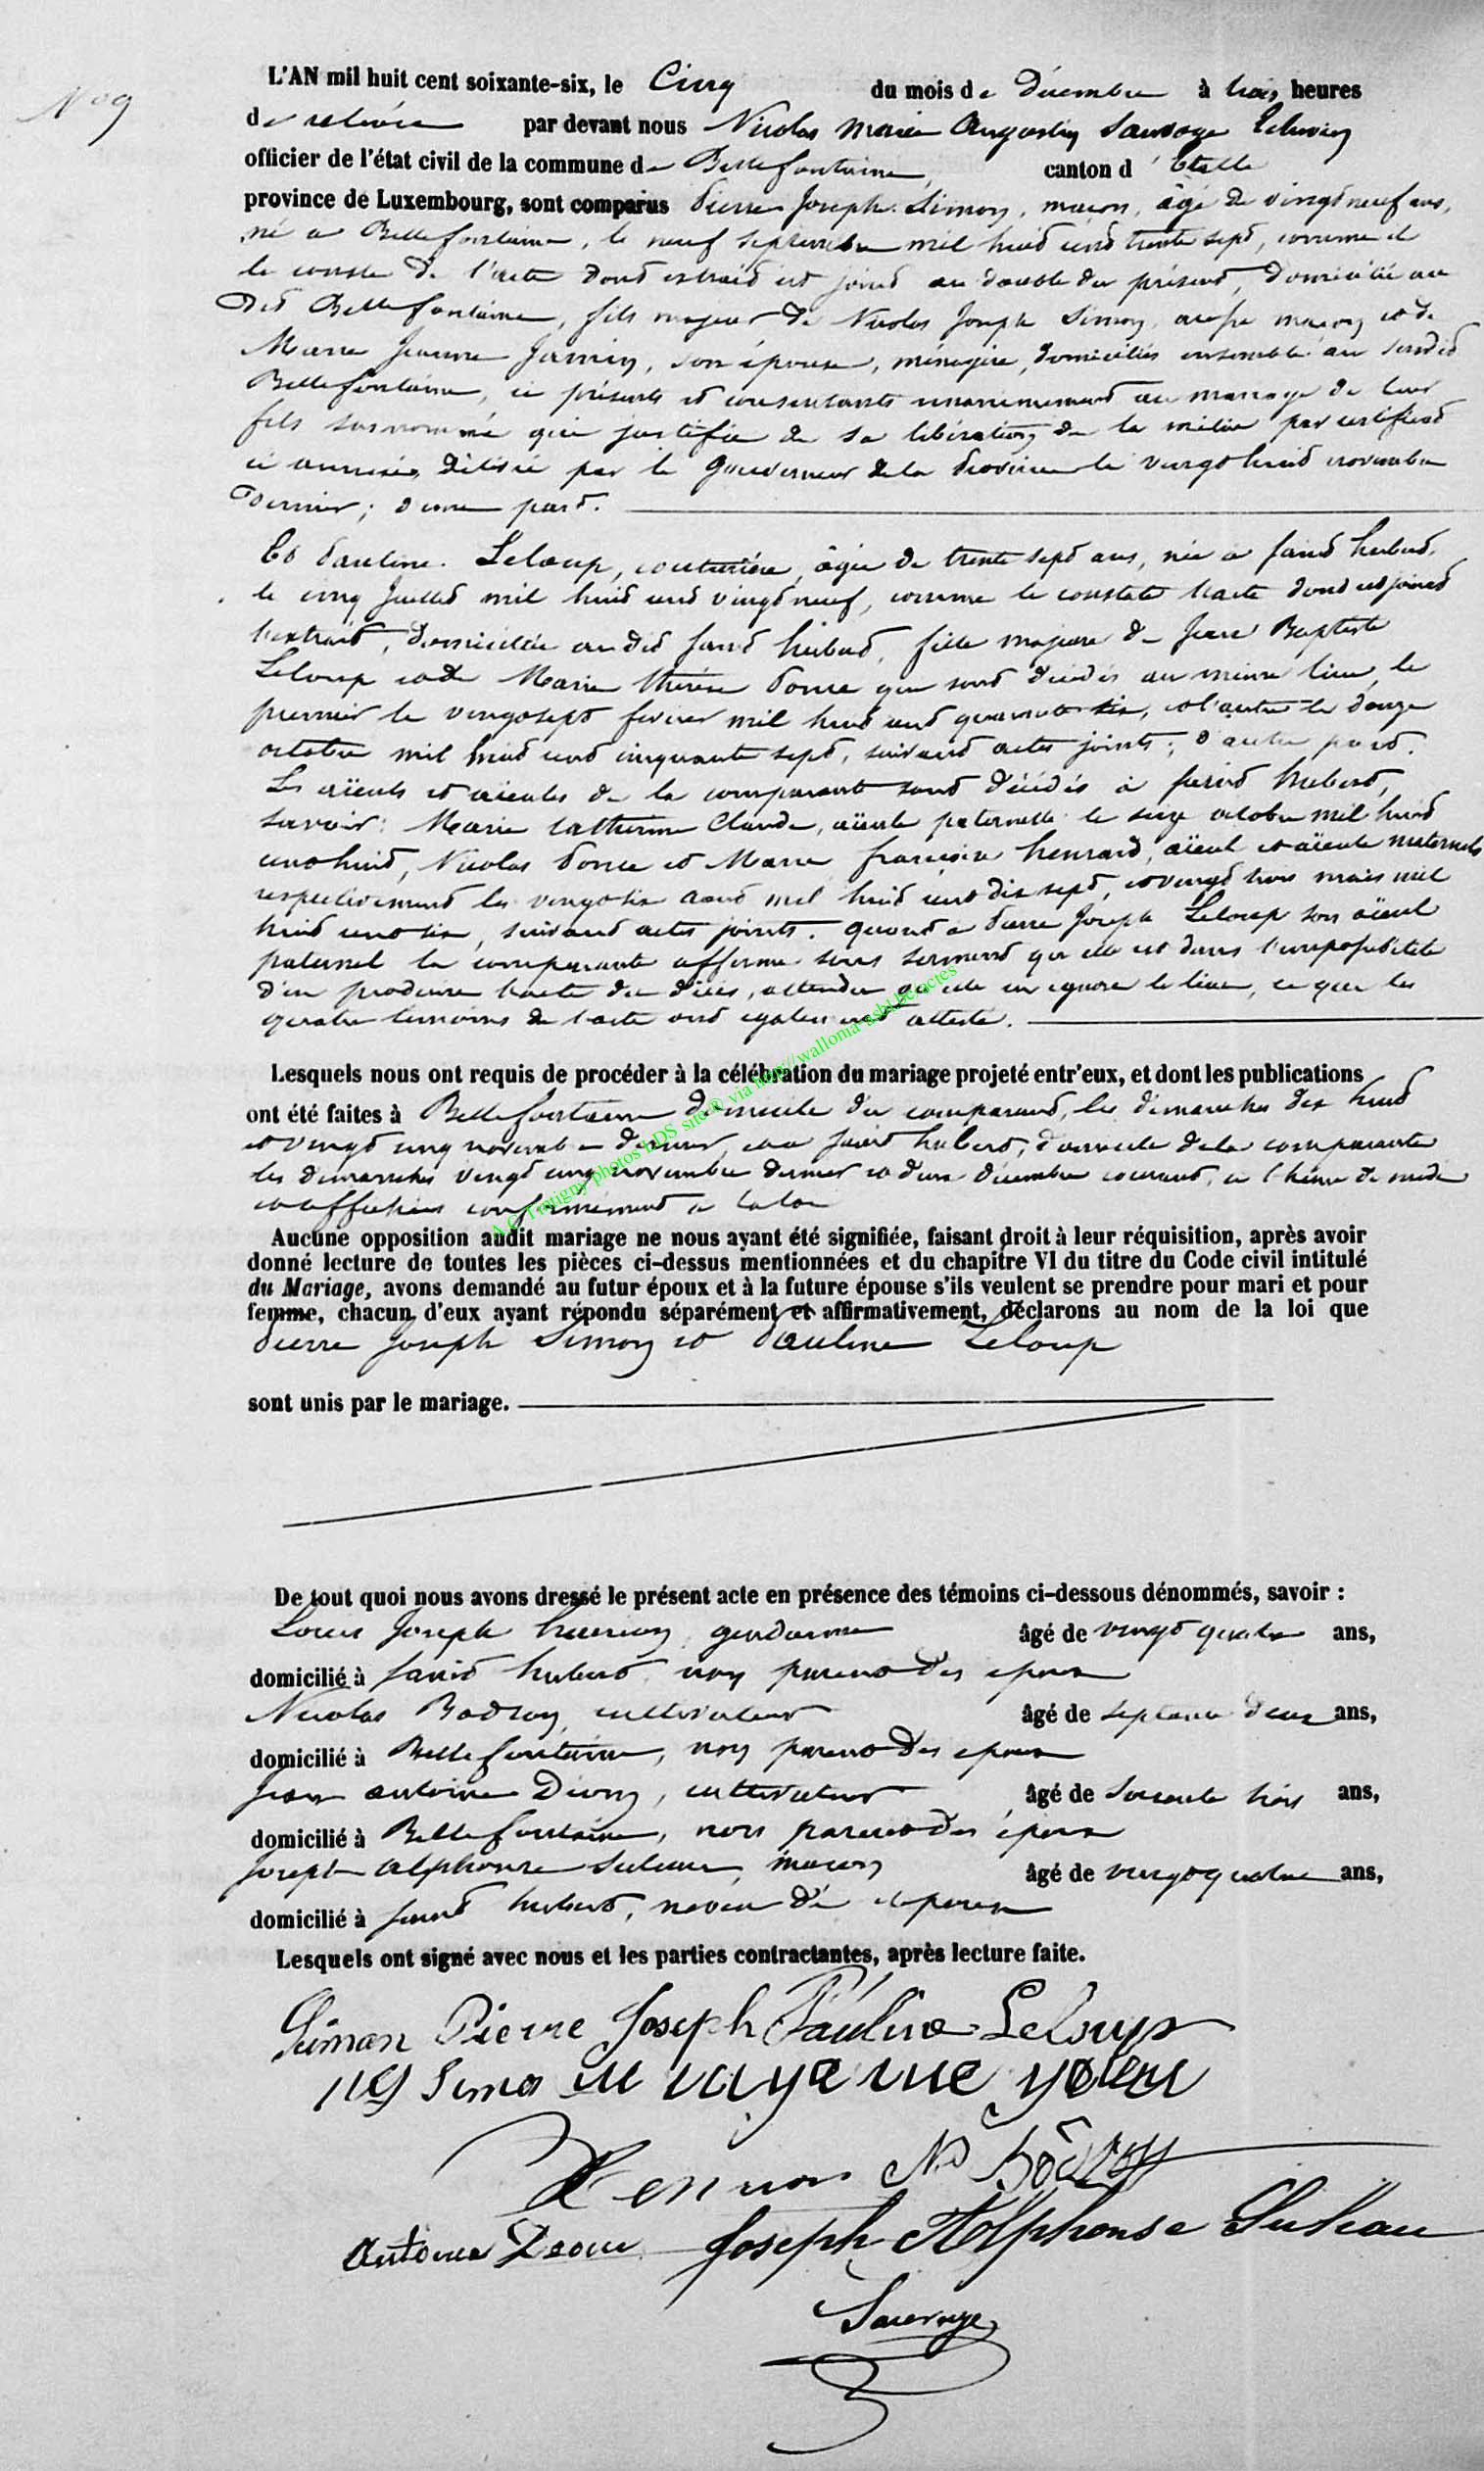 N° 9
L'AN mil huit cent soixante-six, le Cinq du mois de décembre à trois heures
de relevée par devant nous Nicolas Marie Augustin Sauvage Echevin
officier de l'état civil de la commune de Bellefontaine, canton d'Etalle
province de Luxembourg, sont comparus Pierre Joseph Simon, maçon, âgé de vingt neuf ans,
né à Bellefontaine, le neuf septembre mil huit cent trente sept, comme il
le conste de l'acte dont extrait est joint au double du présent, domicilié au
dit Bellefontaine, fils majeur de Nicolas Joseph Simon, maçon et de
Marie Jeanne Jamin, son épouse, ménagère, domiciliés ensemble au susdit
Bellefontaine, ci présents et consentants au mariage de leur
fils susnommé qui justifie de sa libération de la milice par certificat
ci annexé, délivré par le Gouverneur de la Province le vingt huit novembre
dernier; d'une part.
Et Pauline Leloup, couturière, âgée de trente sept ans, née à Saint hubert,
le cinq Juillet mil huit cent vingt neuf, comme le constate l'acte dont est joint
l'extrait, domiciliée au dit Saint hubert, fille majeure de Jean Baptiste
Leloup et de Marie thérèse Ponce qui sont décédés au même lieu, le
premier le vingt sept février mil huit cent quarante six, et l'autre le douze
octobre mil huit cent cinquante sept, suivant actes joints; d'autre part.
Les aïeuls et aïeules de la comparante sont décédés à Saint hubert,
savoir: Marie Catherine Claude, aïeule paternelle le seize octobre mil huit
cent huit, Nicolas Ponce et Marie françoise henrard, aïeul et aïeule maternels
respectivement les vingt six août mil huit cent dix sept, et vingt trois mars mil
huit cent six, suivant actes joints. quant à Pierre Joseph Leloup son aïeul
paternel la comparante affirme sous serment qu'elle est dans l'impossibilité
d'en produire l'acte de décès, attendu qu'elle en ignore le lieu, ce que les
quatre témoins de l'acte ont également attesté.
Lesquels nous ont requis de procéder à la célébration du mariage projeté entr'eux, et dont les publications
ont été faites à Bellefontaine domicile du comparant, les dimanches dix huit
et vingt cinq novembre dernier, et à Saint hubert, domicile de la comparante
les dimanches vingt cinq novembre dernier et deux décembre courant, à l'heure de midi
et affichées conformément à la loi
Aucune opposition audit mariage ne nous ayant été signifiée, faisant droit à leur réquisition, après avoir
donné lecture de toutes les pièces ci-dessus mentionnées et du chapitre VI du titre du Code civil intitulé
du Mariage, avons demandé au futur époux et à la future épouse s'ils veulent se prendre pour mari et pour
femme, chacun d'eux ayant répondu séparément et affirmativement, déclarons au nom de la loi que
Pierre Joseph Simon et Pauline Leloup
sont unis par le mariage.
De tout quoi nous avons dressé le présent acte en présence des témoins ci-dessous dénommés, savoir :
Louis Joseph gendarme âgé de vingt quatre ans,
domicilié à Saint hubert, non parent des époux
Nicolas Bodson, cultivateur âgé de septante deux ans,
domicilié à Bellefontaine, non parent des époux
Jean antoine Dion, cultivateur âgé de soixante trois ans,
domicilié à Bellefontaine, non parent des époux
Joseph alphonse maçon âgé de vingt quatre ans,
domicilié à Saint hubert, neveu de
Lesquels ont signé avec nous et les parties contractantes, après lecture faite.
Simon Pierre Joseph Pauline Leloup
Simo
Joseph Alphonse
Sauvage
A.G. Tintigny photos LDS site® via http://wallonia-asbl.be/actes